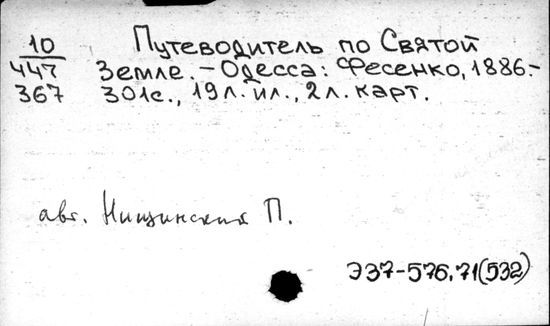 10 Путеводитель по Святой
447 Земле. - Одесса: Фесенко, 1886.-
367 301с., 19л. ил., 2л. карт.
авт. Нищинский П.
Э37-576.71(532)